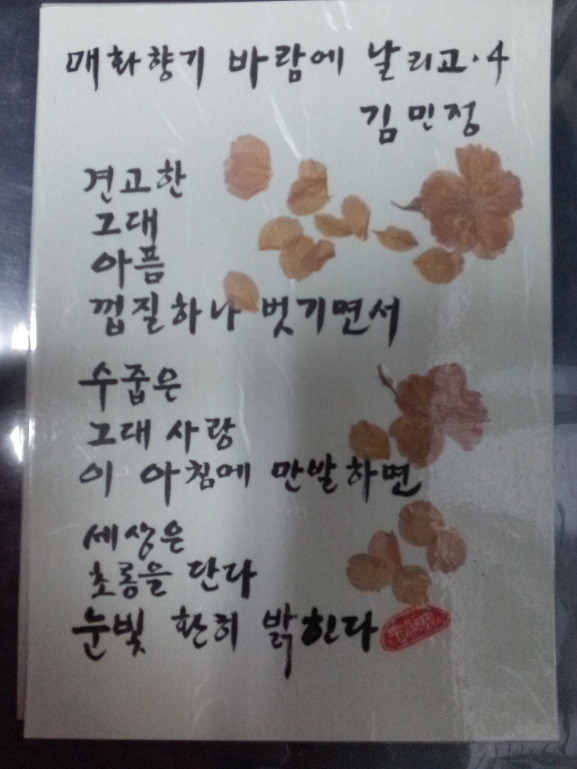 매화향기 바람에 날리고·4
김민정
견고한
그대
아픔
껍질하나 벗기면서
수줍은
그대 사랑
이 아침에 만발하면
세상은
초롱을 단다
눈빛 환히 밝힌다